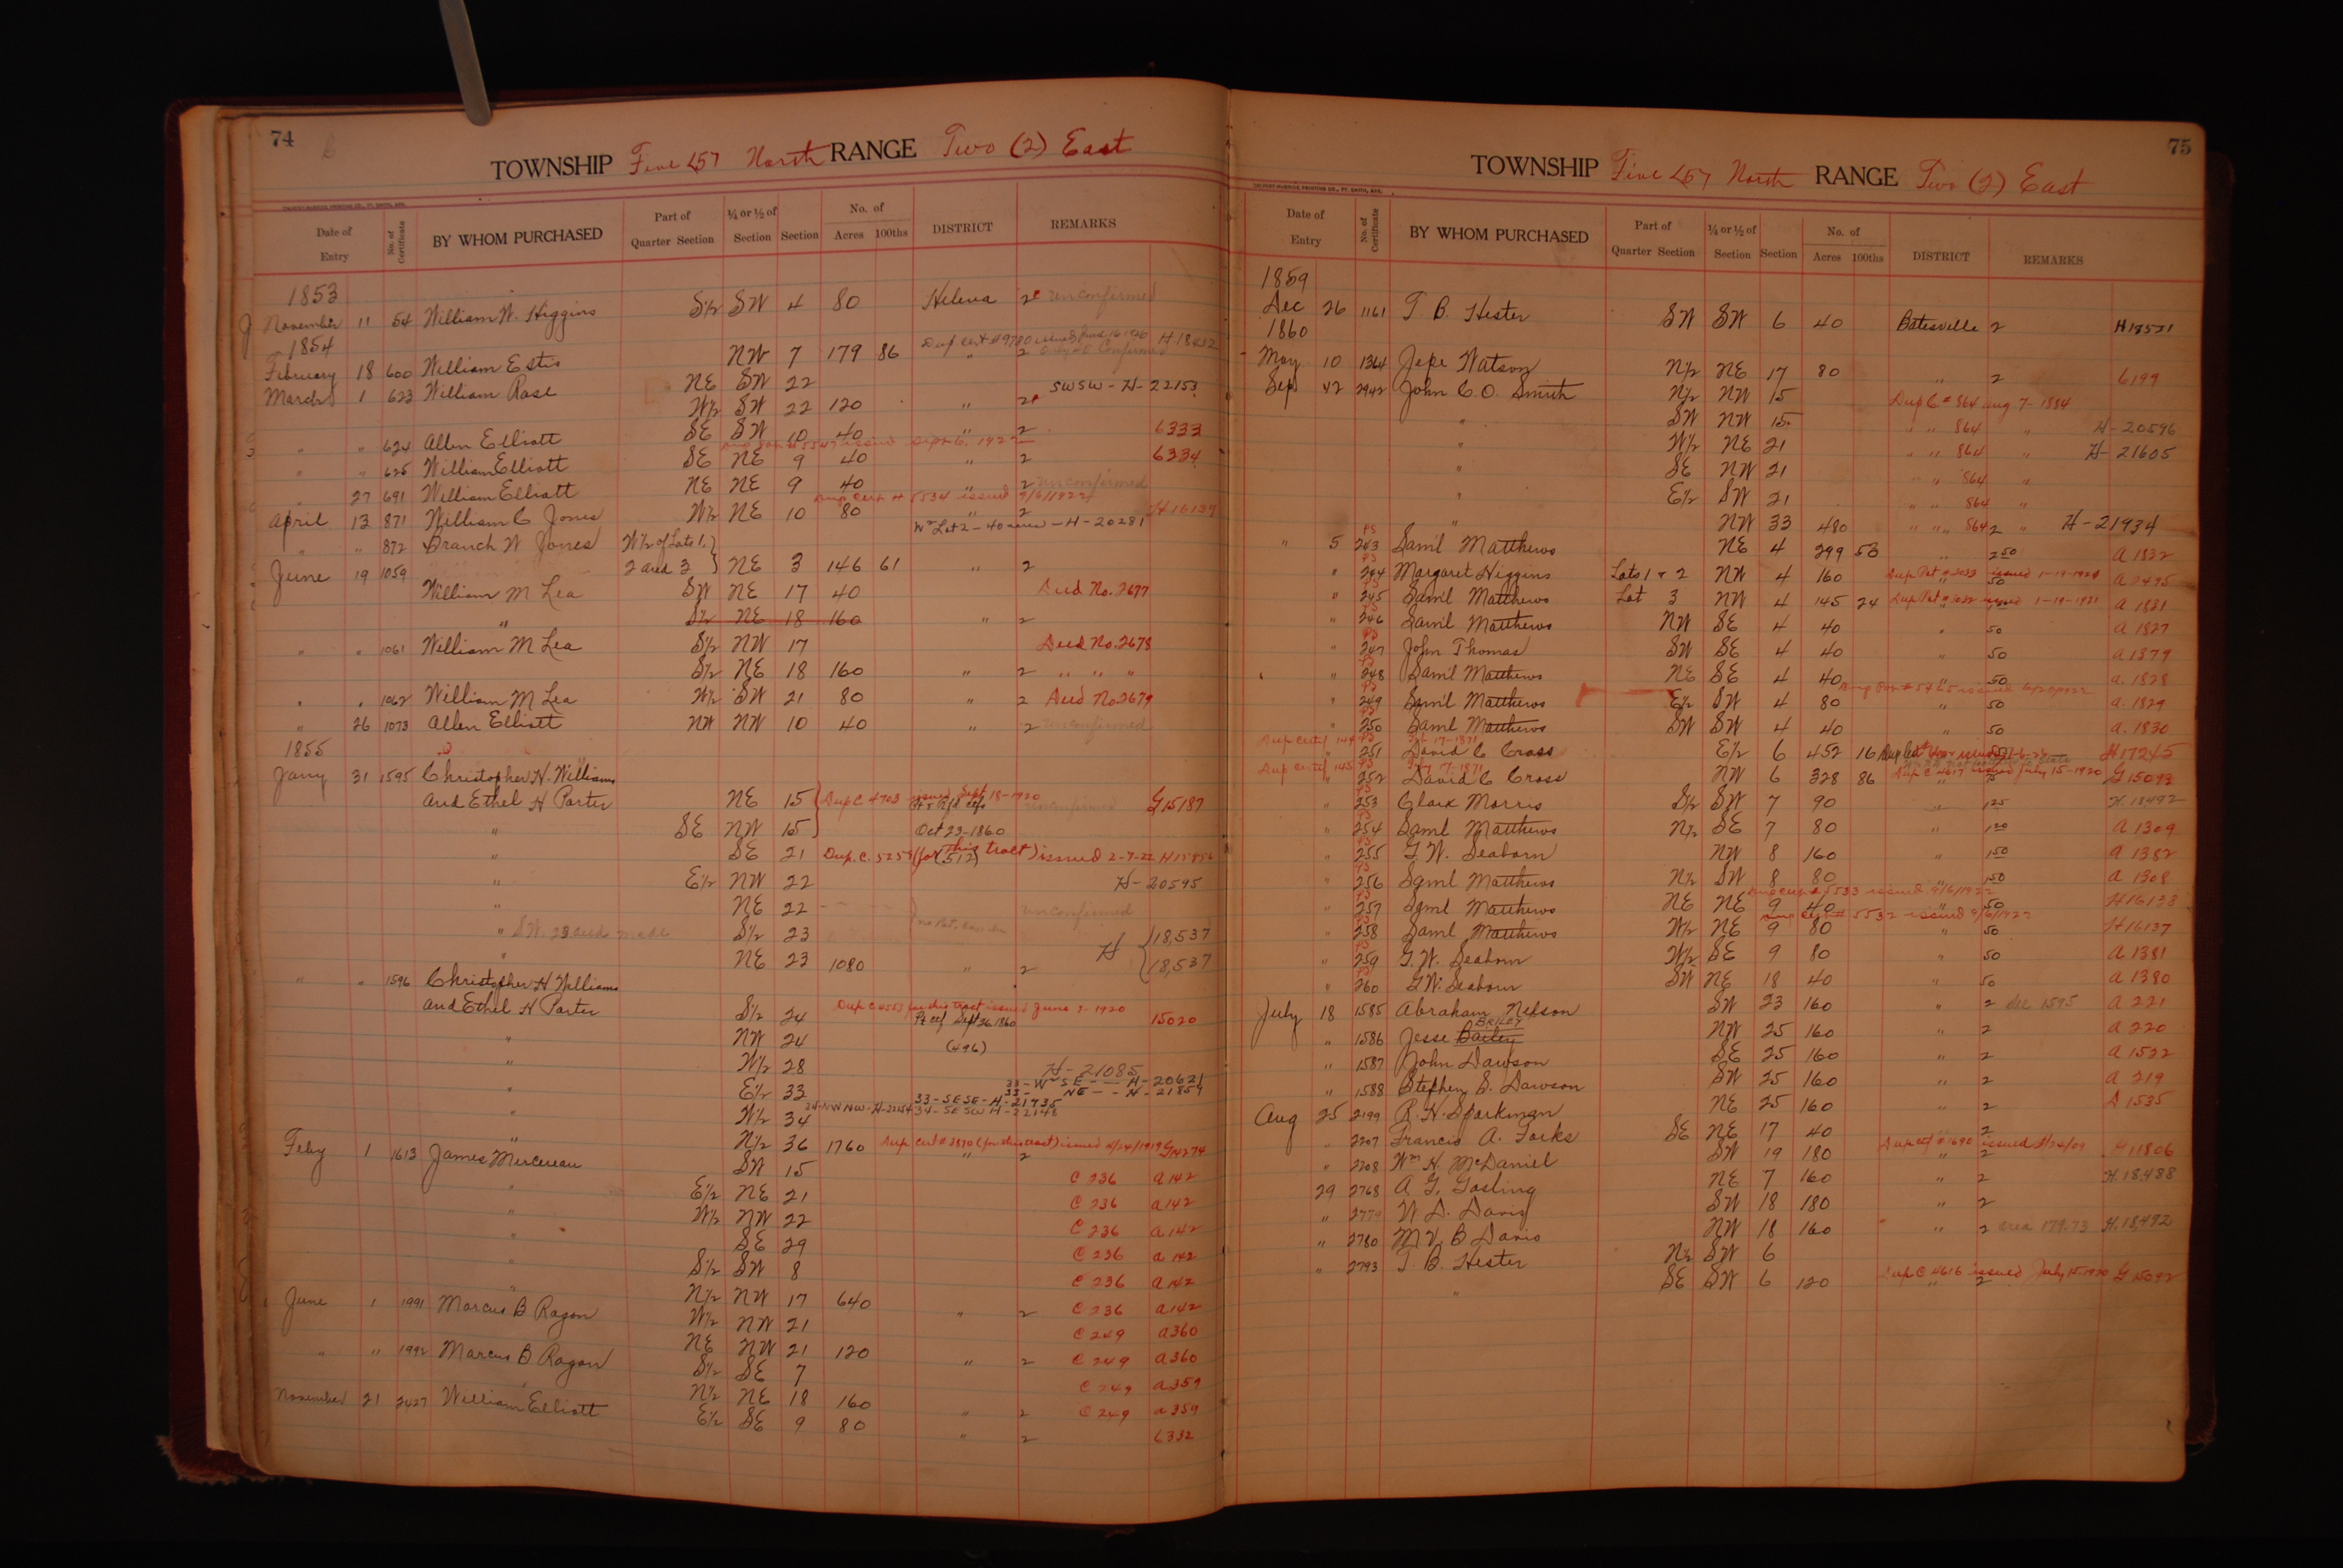 74
TOWNSHIP Five (5) North RANGE Two (2) East
Date of Entry No. of Certificate BY WHOM PURCHASED Part of Quarter Section ¼ or ½ of Section Section No. of Acres 100ths DISTRICT REMARKS
1853
November 11 54 William W. Higgins S½ SW 4 80 Helena 2 unconfirmed
1854
February 18 600 William Estis NW 7 179 86 " 2 Confirmed H 18412
March 1 623 William Rase NE SW 22 SWSW - H - 22153
W½ SW 22 120 " 2
" " 624 Allen Elliott SE SW 10 40 " 2 6333
" " 625 William Elliott SE NE 9 40 " 2 6334
" 27 691 William Elliott NE NE 9 40 " 2 unconfirmed
Dup Cert # 5534 issued 9/6/1922
April 13 871 William C Jones W½ NE 10 80 " 2 H 16139
" " 872 Branch W Jones W½ of Lots 1. W½ Lot 2 - 40 acres - H - 20281
June 19 1059 2 and 3 NE 3 146 61 " 2
William M Lea SW NE 17 40 Deed No. 2677
" S½ NE 18 160 " 2
" " 1061 William M Lea S½ NW 17 Deed No. 2678
S½ NE 18 160 " 2 " " "
" " 1062 William M Lea W½ SW 21 80 " 2 Deed No. 2679
" 26 1073 Allen Elliott NW NW 10 40 " 2 unconfirmed
1855
Jany 31 1595 Christopher H. Williams
and Ethel H Porter NE 15 Dup C 4703 issued Sept 18-1920 unconfirmed G 15187
" SE NW 15 Oct 23-1860
" SE 21 Dup. C. 5258 (for this tract) issued 2-7-22 H 15856
(512)
" E½ NW 22 H - 20595
" NE 22 unconfirmed
" S½ 23 H 18,537
" NE 23 1080 " 2 18,537
" " 1596 Christopher H Williams
and Ethel H Porter S½ 24 Dup C 4553 for this tract issued June 9-1920 15020
Sept 26 1860
" NW 24 (496)
" W½ 28 H - 21085
33 - W½ SE - H - 20621
" E½ 33 33 - SESE - H - 21935 33 - NE - - H - 21859
" W½ 34 34-NWNW-H-22154 34 - SE SW H - 22148
" N½ 36 1760 Dup Cert # 3870 (for this tract) issued 4/24/1919 G 14274
" 2
Feby 1 1613 James Mercereau SW 15 C 236 A 142
" E½ NE 21 C 236 A 142
" W½ NW 22 C 236 A 142
" SE 29 C 236 A 142
" S½ SW 8 C 236 A 142
" N½ NW 17 640 " 2 C 236 A 142
June 1 1991 Marcus B Ragon W½ NW 21 C 249 A 360
NE NW 21 120 " 2 C 249 A 360
" " 1992 Marcus B Ragon S½ SE 7 C 249 A 359
N½ NE 18 160 " 2 C 249 A 359
November 21 2427 William Elliott E½ SE 9 80 " 2 6332
75
TOWNSHIP Five (5) North RANGE Two (2) East
Date of Entry No. of Certificate BY WHOM PURCHASED Part of Quarter Section ¼ or ½ of Section Section No. of Acres 100ths DISTRICT REMARKS
1859
Dec 26 1161 T. B. Hester SW SW 6 40 Batesville 2 H 18521
1860
May 10 1364 Jepe Watson N½ NE 17 80 " 2 6199
Sep 2942 John C. O. Smith N½ NW 15 Dup C # 864 aug 7-1884
" SW NW 15 " " 864 " H - 20596
" W½ NE 21 " " 864 " H - 21605
" SE NW 21 " " 864 "
" E½ SW 21 " " 864 "
" NW 33 480 " " 864 2 " H - 21934
" 5 243 Saml Matthews NE 4 299 56 " 2 50 A 1832
" 244 Margaret Higgins Lots 1 & 2 NW 4 160 " 50 A 2495
" 245 Saml Matthews Lot 3 NW 4 145 24 issued 1-19-1921 A 1831
" 246 Saml Matthews NW SE 4 40 " 50 A 1827
" 247 John Thomas SW SE 4 40 " 50 A 1379
" 248 Saml Matthews NE SE 4 40 " 50 A. 1828
" 249 Saml Matthews E½ SW 4 80 " 50 A. 1829
" 250 Saml Matthews SW SW 4 40 " 50 A. 1830
Dup Certif 144
" 251 David C Cross E½ 6 452 16 H 17245
Dup Certif 145 July 17-1871
" 252 David C Cross NW 6 328 86 Dup C 4617 issued July 15-1920 G 15093
" 253 Clark Morris S½ SW 7 90 " 1 25 H. 18,492
" 254 Saml Matthews N½ SE 7 80 " 1 50 A 1309
" 255 G. W. Seaborn NW 8 160 " 1 50 A 1382
" 256 Saml Matthews N½ SW 8 80 " 1 50 A 1308
Dup Cert # 5533 issued 9/6/1922
" 257 Saml Matthews NE NE 9 40 " 50 H 16138
Dup Cert # 5532 issued 9/6/1922
" 258 Saml Matthews W½ NE 9 80 " 50 H 16137
" 259 G. W. Seaborn W½ SE 9 80 " 50 A 1381
" 260 G. W. Seaborn SW NE 18 40 " 50 A 1380
July 18 1585 Abraham Nelson SW 23 160 " 2 See 1595 A 221
BRILEY
" 1586 Jesse Bailey NW 25 160 " 2 A 220
" 1587 John Dawson SE 25 160 " 2 A 1522
" 1588 Stephen S. Dawson SW 25 160 " 2 A 219
Aug 25 2199 R. H. Sparkman NE 25 160 " 2 A 1535
" 2207 Francis A. Forks SE NE 17 40 " 2
" 2208 Wm H. McDaniel SW 19 180 Dup cert # 1690 issued 2/24/09 H 11806
29 2768 A G. Gosling NE 7 160 " 2 H. 18,488
" 2779 W D. Davis SW 18 180 " 2
" 2780 M V. B Davis NW 18 160 " 2 area 179.73 H. 18,492
" 2793 T. B. Hester N½ SW 6
" SE SW 6 120 Dup C 4616 issued July 15-1920 G 15092